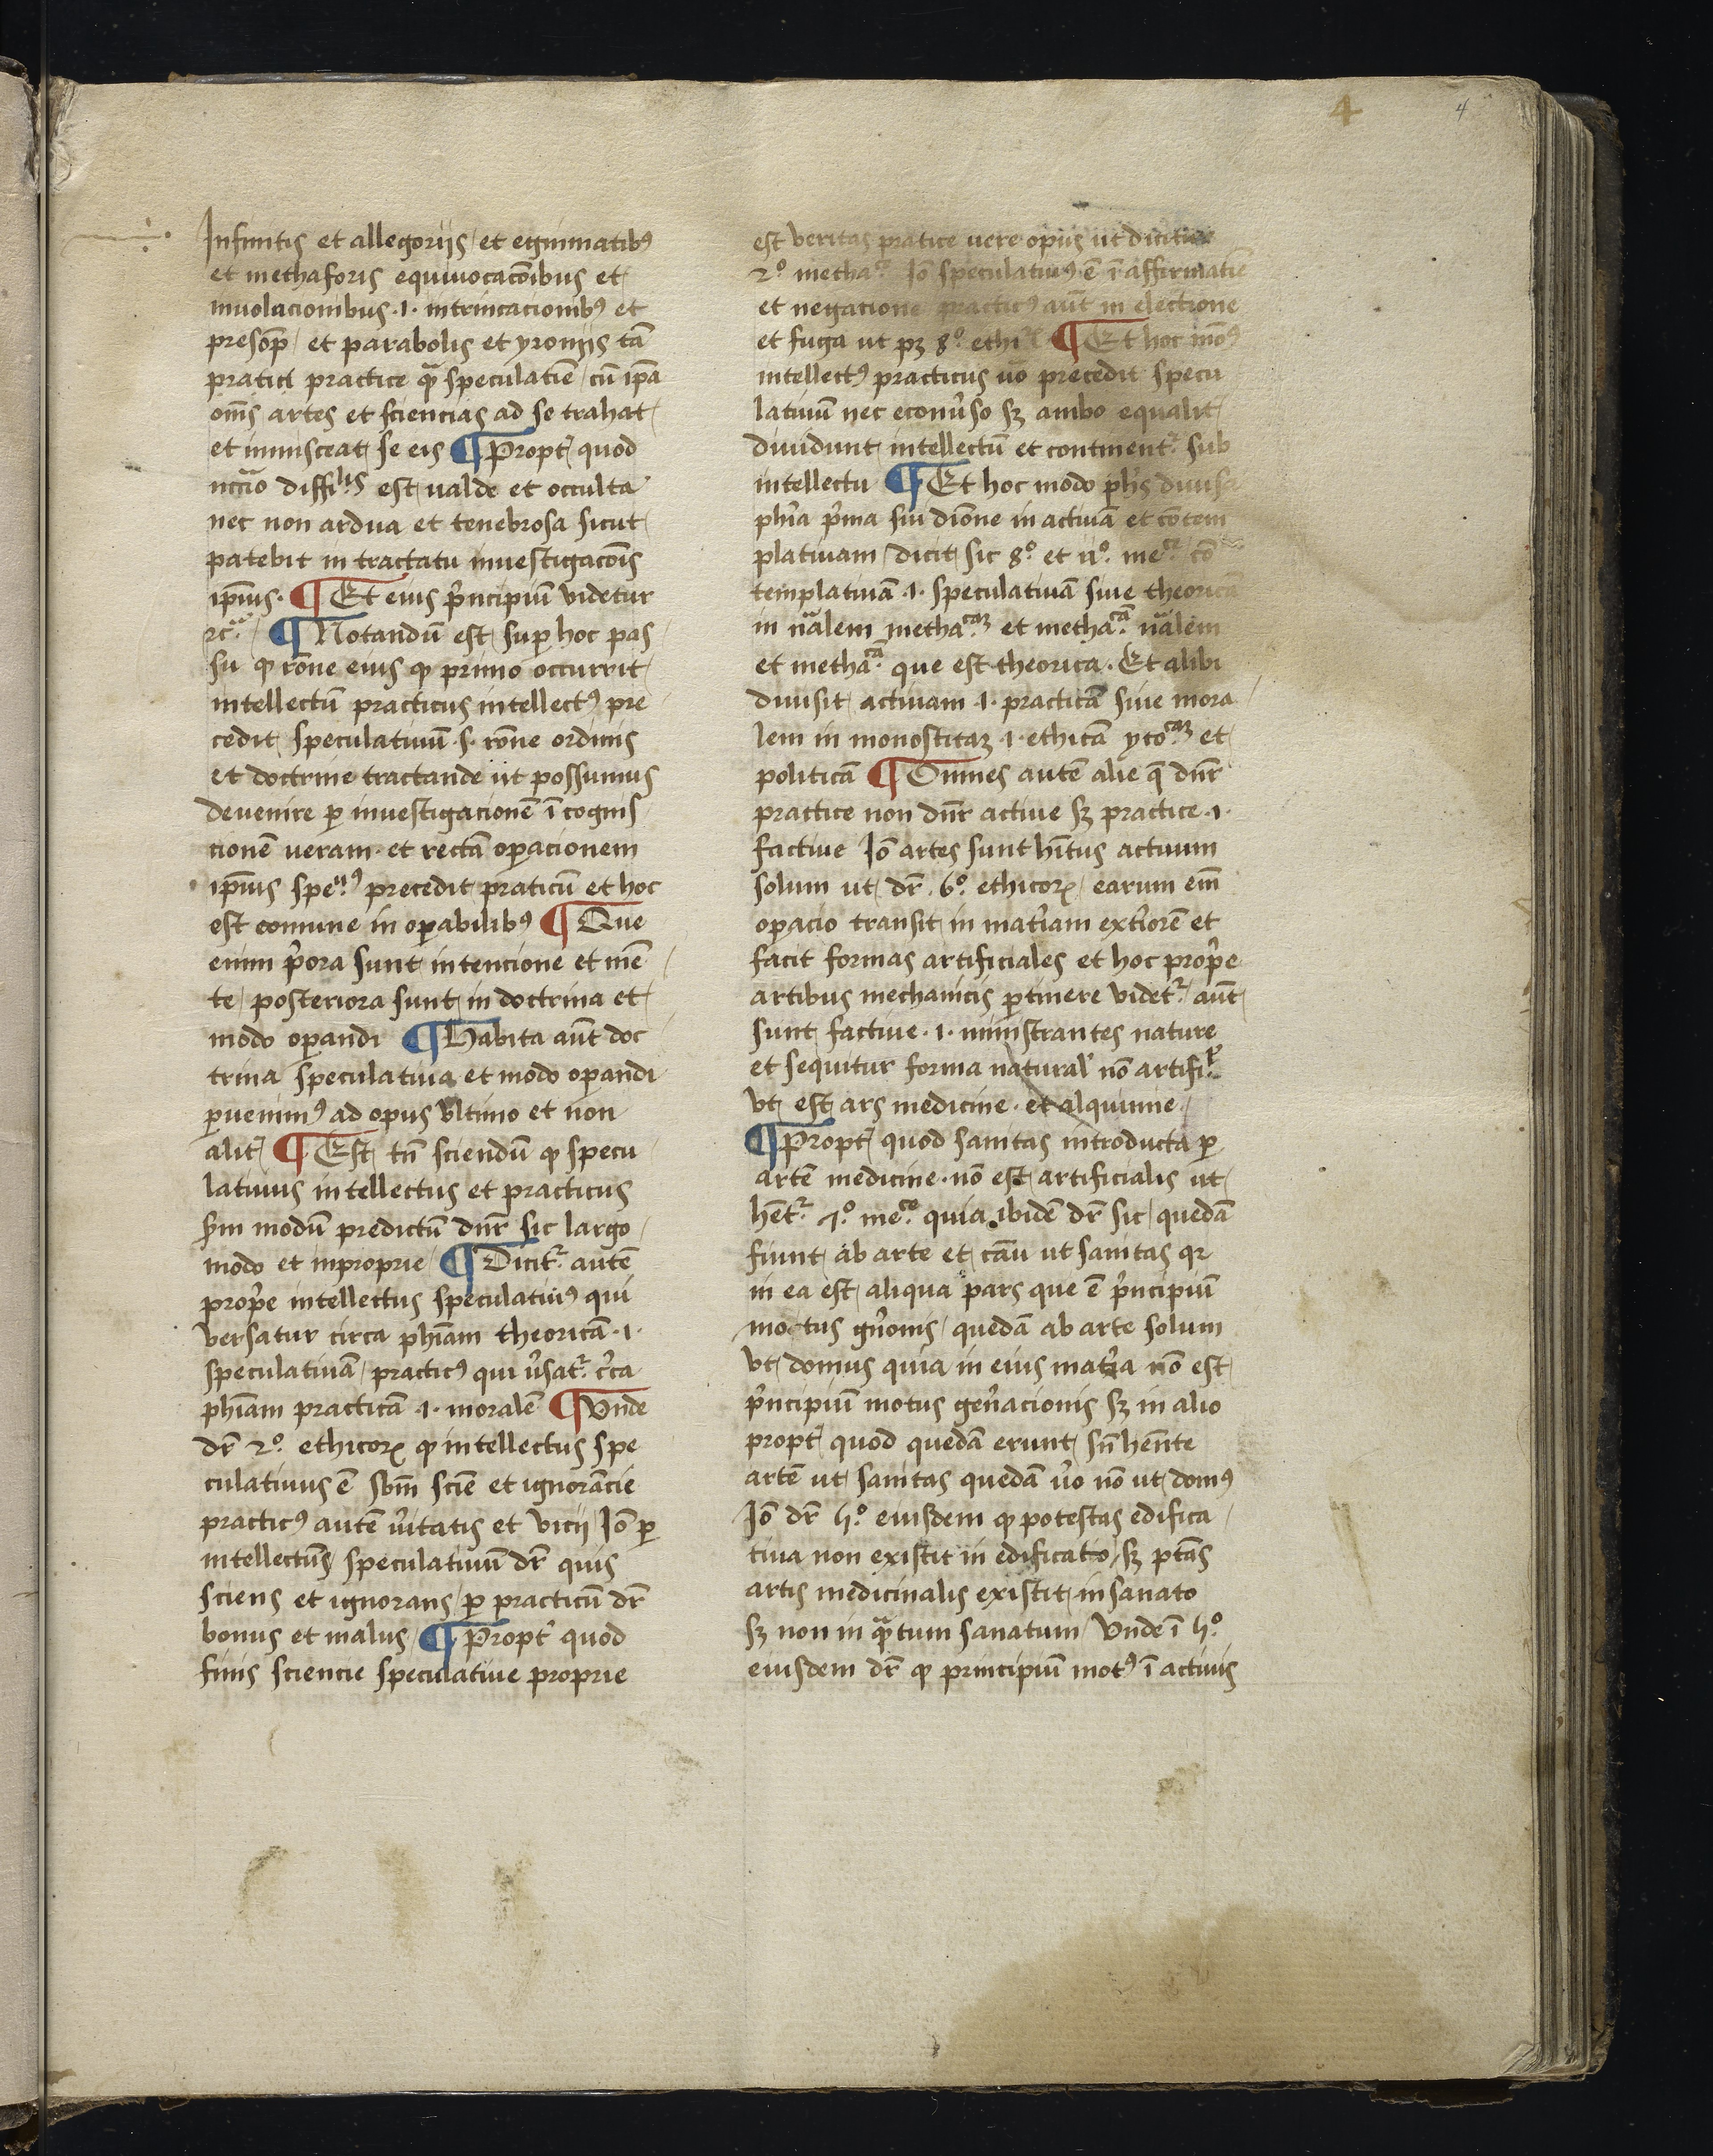 4 4
Infinitis et allegoriis / et enigmatibꝯ
et methaforis equiuocacōibus et
inuolacionibus ·i· intrincacionibꝯ et
et parabolis et yroniis tā
practice quā speculatiē / cū ip̄a
om̄s artes et sciencias ad se trahat
et inmisceat se eis ¶ Propt̄ quod
est ualde et occulta
nec non ardua et tenebrosa sicut
patebit in tractatu inuestigacōis
ip̄ius · ¶ Et eius p̄ncipiū videtur
¶ Notandū est sup̄ hoc pas
su ꝙ rōne eius ꝙ primo occurrit
intellectū practicus intellectꝯ pre
cedit speculatiuū ·s· rōne ordinis
et doctrine tractande ut possumus
deuenire ꝑ inuestigacionē ī cognis
cionē ueram et rectā oꝑacionem
ip̄ius precedit praticū et hoc
est comune in oꝑabilibꝯ ¶ Que
enim p̄ora sunt intencione et mē
te / posteriora sunt in doctrina et
modo oꝑandi ¶ Habita aūt doc
trina speculatiua et modo oꝑandi
ꝑuenimꝯ ad opus vltimo et non
alit̄ ¶ Est tn̄ sciendū ꝙ specu
latiuus intellectus et practicus
scd̄m modū predictū dn̄r sic largo
modo et inproprie / ¶ Dicit᷑ autē
prop̄e intellectus speculatiuꝯ qui
versatur circa ph̄iam theoricā ·i·
speculatiuā / practicꝯ qui v̄sat᷑ c̄ca
ph̄iam practicā ·i· moralē ¶ Vnde
dr̄ 2º ethicoꝝ ꝙ intellectus spe
culatiuus ē sciē et ignorācie
practicꝯ autē v̄itatis et vicij Iō ꝑ
intellectū speculatiuū dr̄ quis
sciens et ignorans / ꝑ practicū dr̄
bonus et malus / ¶ Propt̄ quod
finis sciencie speculatiue proprie
est veritas pratice uere opus ut dicitur
2º metha Iō speculatiuꝯ ē ī affirmatiē
et negacione practicꝯ aūt in electione
et fuga ut pꝫ 8º ¶ Et hoc mōꝯ
intellectꝯ practicus nō precedit specu
latiuū nec econūso sꝫ ambo equalit
diuidunt intellectū et continent᷑ sub
intellectu ¶ Et hoc modo diuisa
ph̄ia p̄ma in actiuā et cōtem
platiuam / dicit sic 8º et cō
templatiuā ·i· speculatiuā siue theoricā
in nālem methacaꝫ et methacā nālem
et methacā que est theorica · Et alibi
diuisit actiuam ·i· practicā siue mora
lem in monosticaꝫ ·i· ethicā ycocaꝫ et
politicā ¶ Omnes autē alie q̄ dn̄r
practice non dn̄r actiue sꝫ practice ·i·
factiue Iō artes sunt hītus actiuum
solum ut dr̄ 6º ethicoꝝ / earum em̄
oꝑacio transit in mat̄iam ext̄iorē et
facit formas artificiales et hoc prop̄e
artibus mechanicis ꝑtinere videt᷑ / aūt
sunt factiue ·i· ministrantes nature
et sequitur forma natural' nō artifi
vt est ars medicine · et alquimie ·
¶ Propt̄ quod sanitas introducta ꝑ
artē medicine · nō est artificialis ut
hēt᷑ 7º quia ibidē dr̄ sic / quedā
fiunt ab arte et cāu ut sanitas qr
in ea est aliqua pars que ē p̄ncipiū
motus gn̄onis / quedā ab arte solum
vt domus quia in eius mat̄ia nō est
p̄ncipiū motus gen̄acionis sꝫ in alio
propt̄ quod quedā erunt sn̄ hēnte
artē ut sanitas quedā v̄o nō ut domꝯ
Iō dr̄ 5º eiusdem ꝙ potestas edifica
tiua non existit in edificato / sꝫ ptās
artis medicinalis existit in sanato
sꝫ non in quātum sanatum / Vnde ī 5º
eiusdem dr̄ ꝙ principiū motꝯ ī actiuis